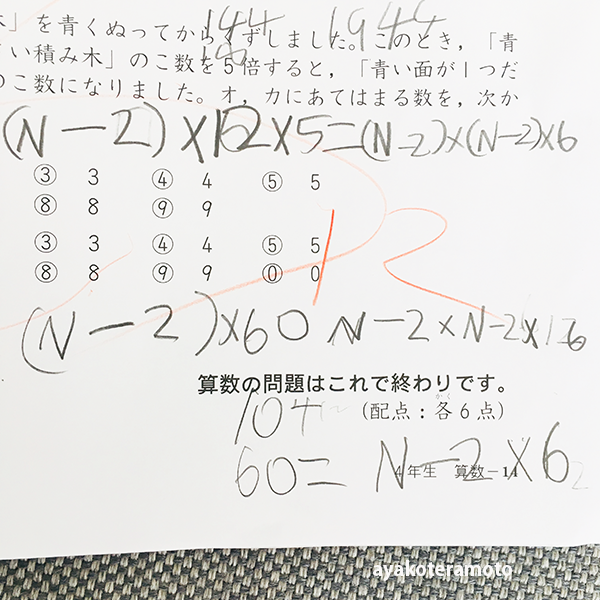 144 1944
木」を青くぬってからくずしました。このとき,「青
い積み木」のこ数を5倍すると,「青い面が1つだ
18
のこ数になりました。オ,カにあてはまる数を,次か
(N-2)×12×5=(N-2)×(N-2)×6
③ 3 ④ 4 ⑤ 5
⑧ 8 ⑨ 9
③ 3 ④ 4 ⑤ 5
⑧ 8 ⑨ 9 ⓪ 0
12
(N-2)×60 N-2×N-2×6
算数の問題はこれで終わりです。
104 (配点:各6点)
かく
60= N-2×6
4年生 算数-14
ayakoteramoto